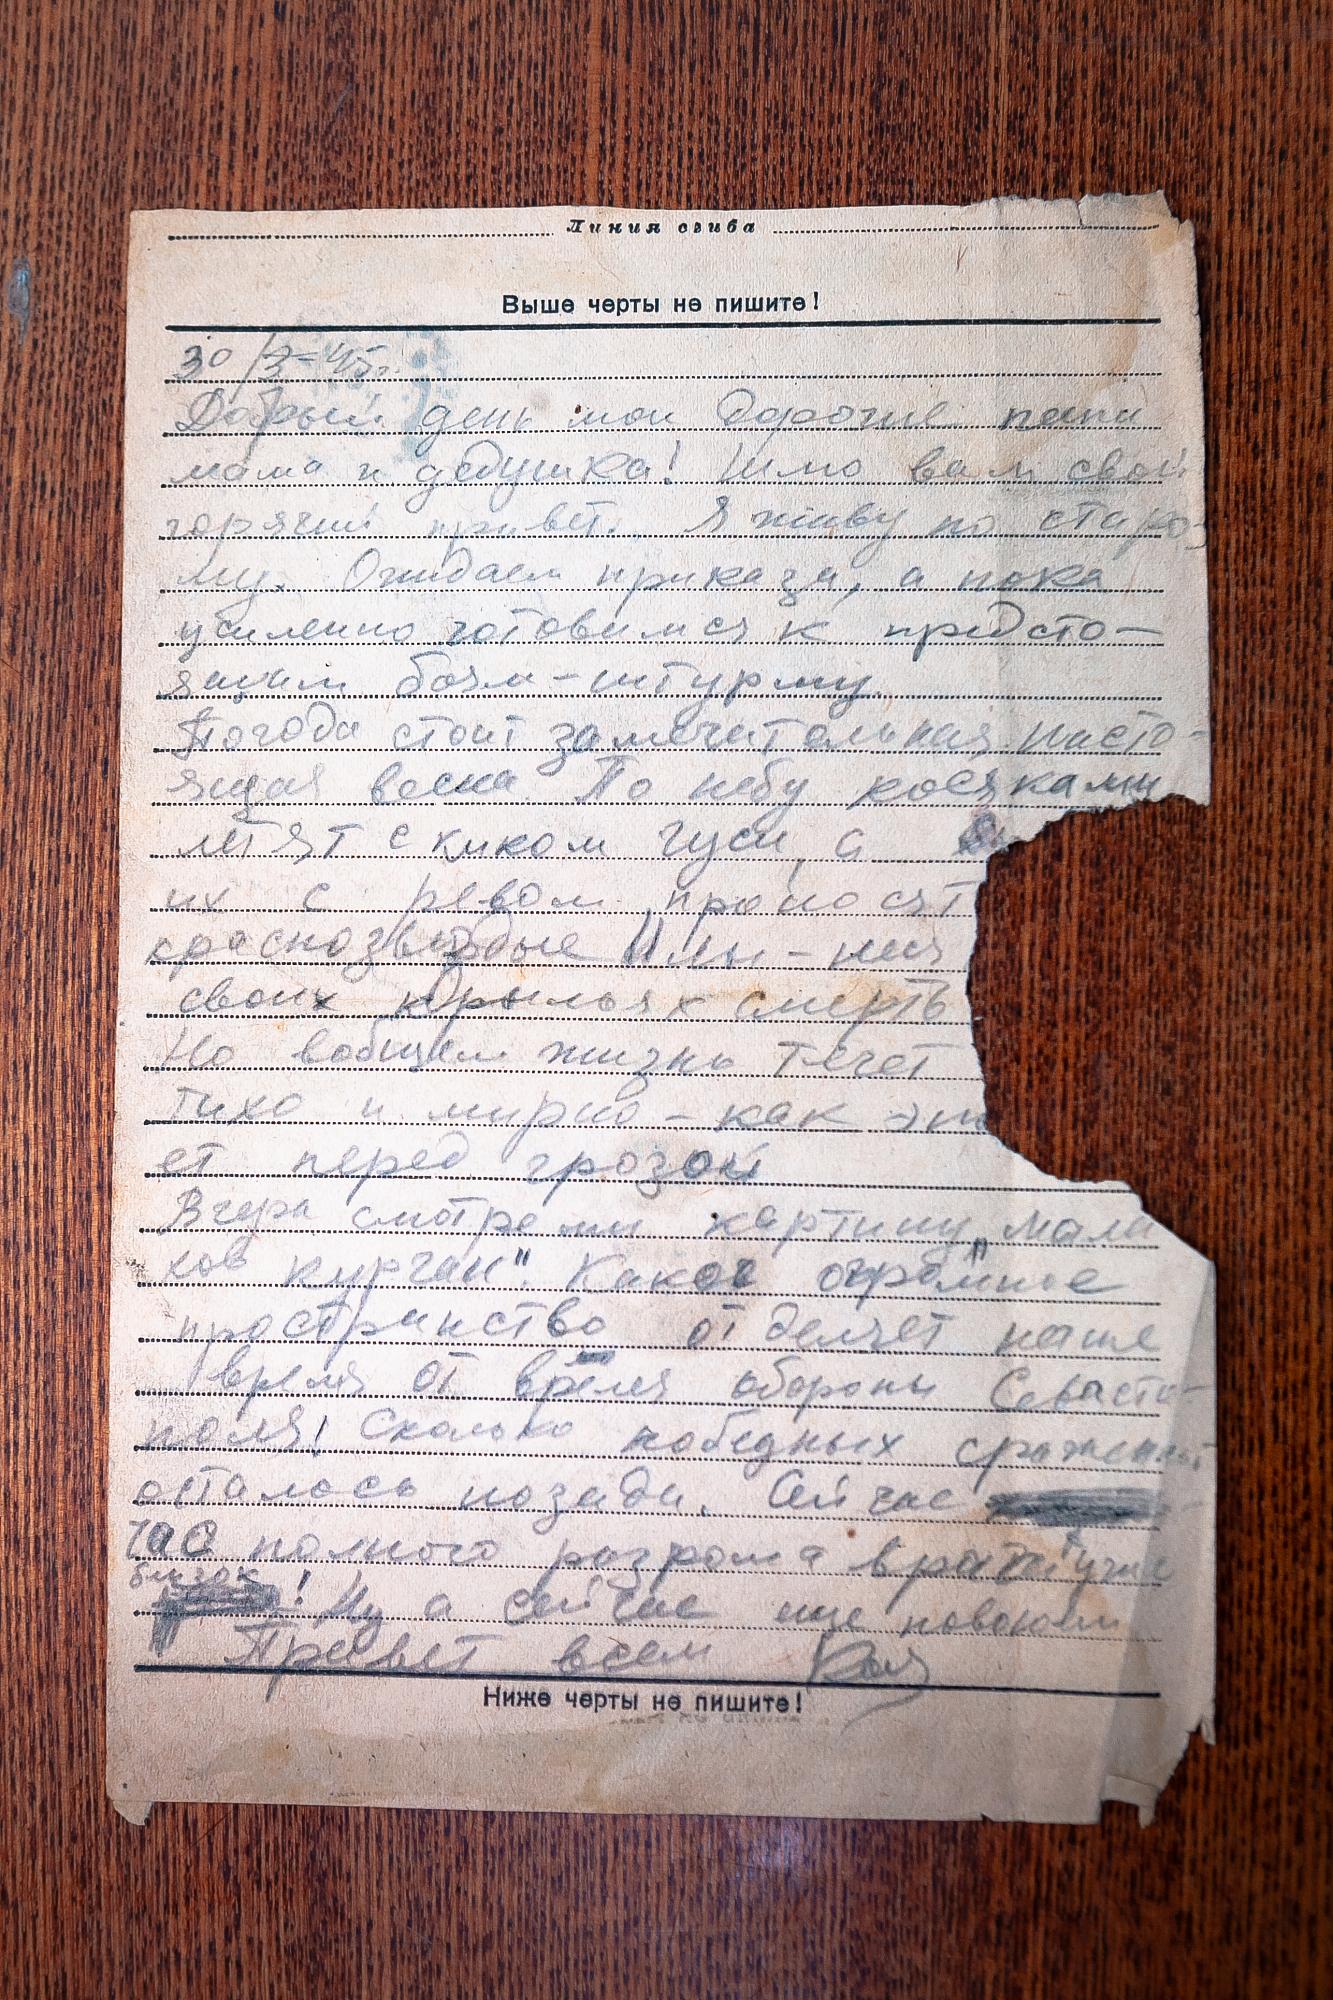 Линия сгиба
Выше черты не пишите!
30/3-45г.
Добрый день мои дорогие папа
мама и дедушка! Шлю вам свой
горячий привет. Я живу по старо-
му. Ожидаем приказа, а пока
усиленно готовимся к предсто-
ящим боям-штурму.
Погода стоит замечательная, насто-
ящая весна. По небу косяками
летят с криком гуси, а
их с ревом проносят
краснозвездные Илы-неся
своих крыльях смерть
Но вобщем жизнь течет
тихо и мирно-как
ет перед грозой
Вчера смотрели картину „Мала
хов курган". Какое огромное
пространство отделяет наше
время от время обороны Севасто-
поля! Сколько победных сражений
осталось позади. Сейчас
час полного разгрома врага
близок! Ну а сейчас еще повоюем
Привет всем
Ниже черты не пишите!